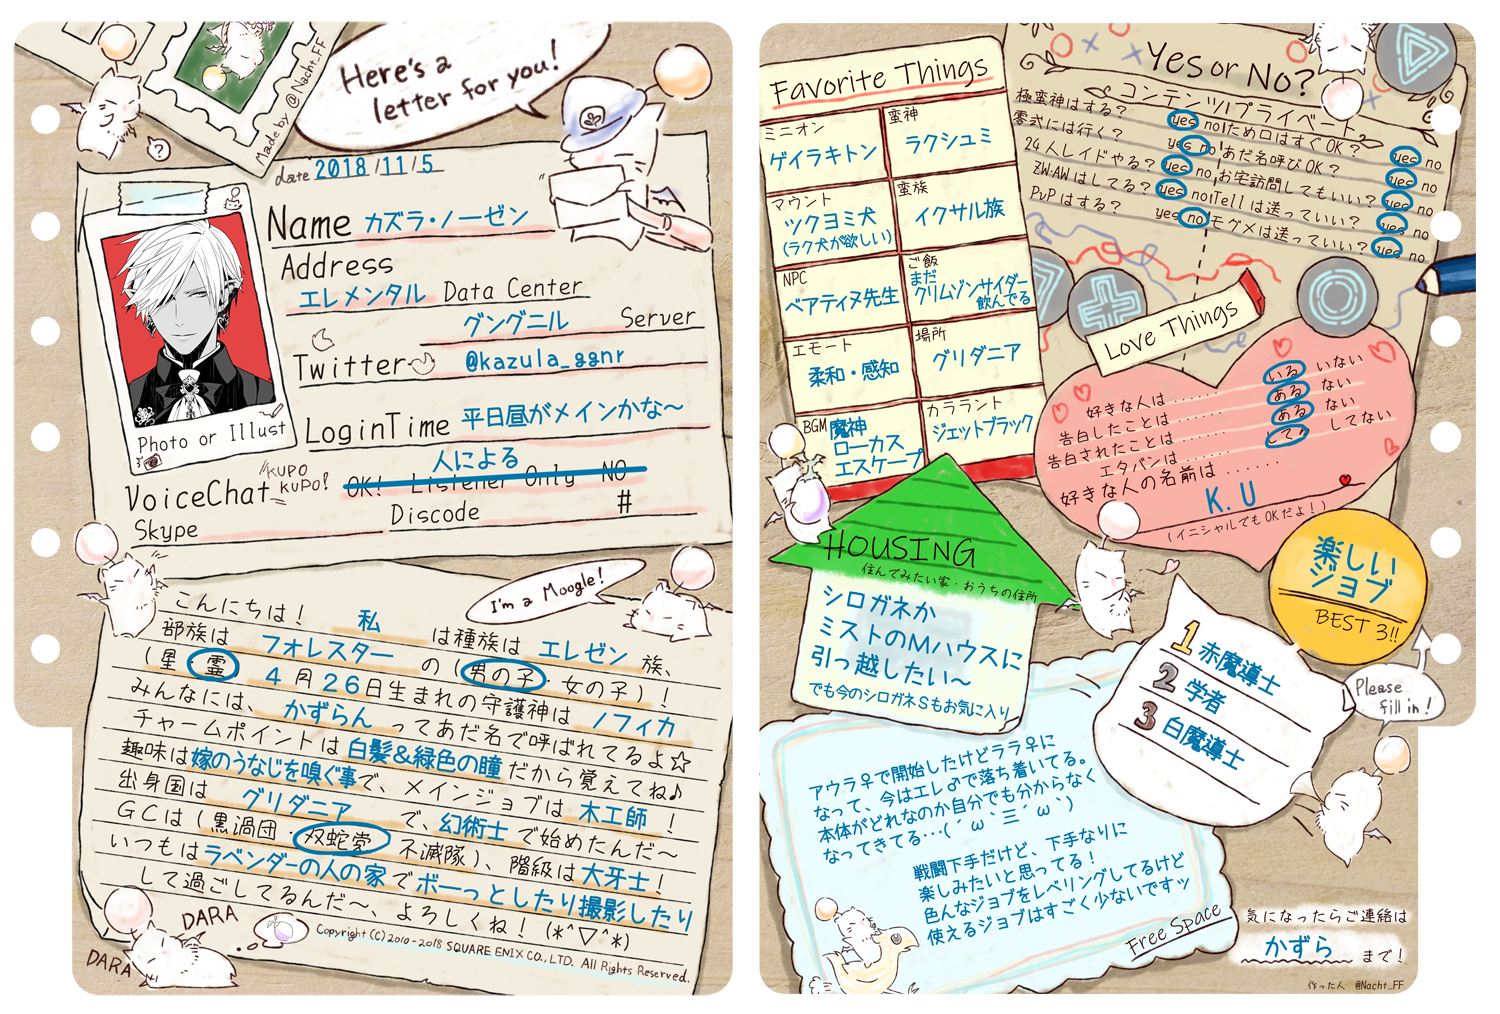 Here's a
letter for you!
Made by @Nacht_FF
?
date 2018/11/5
Name カズラ・ノーゼン
Address
エレメンタル Data Center
グングニル Server
Twitter @kazula_ggnr
Photo or Illust
LoginTime 平日昼がメインかな～
人による
VoiceChat KUPO KUPO! OK! Listener Only NO
Skype Discode #
I'm a Moogle!
こんにちは！ 私 は種族は エレゼン 族、
部族は フォレスター の（男の子・女の子）！
（星・霊）4月26日生まれの守護神は ノフィカ
みんなには、かずらん ってあだ名で呼ばれてるよ☆
チャームポイントは 白髪&緑色の瞳 だから覚えてね♪
趣味は嫁のうなじを嗅ぐ事で、メインジョブは 木工師！
出身国は グリダニア で、幻術士で始めたんだ～
GCは（黒渦団・双蛇党・不滅隊）、階級は大牙士！
いつもはラベンダーの人の家でボーっとしたり撮影したり
して過ごしてるんだ～、よろしくね！(*^▽^*)
DARA
DARA
Copyright (C) 2010-2018 SQUARE ENIX CO., LTD. All Rights Reserved.
Favorite Things
ミニオン
ゲイラキトン
蛮神
ラクシュミ
マウント
ツクヨミ犬
(ラク犬が欲しい)
蛮族
イクサル族
NPC
ベアティヌ先生
ご飯
まだ
クリムゾンサイダー
飲んでる
エモート
柔和・感知
場所
グリダニア
BGM 魔神
ローカス
エスケープ
カララント
ジェットブラック
Yes or No?
コンテンツ/プライベート
極蛮神はする？ yes no
零式には行く？ yes no
24人レイドやる？ yes no
ZW・AWはしてる？ yes no
PvPはする？ yes no
ため口はすぐOK？ yes no
あだ名呼びOK？ yes no
お宅訪問してもいい？ yes no
Tellは送っていい？ yes no
モグメは送っていい？ yes no
Love Things
好きな人は...... いる いない
告白したことは...... ある ない
告白されたことは...... ある ない
エタバンは...... してる してない
好きな人の名前は......
K.U
(イニシャルでもOKだよ！)
HOUSING
住んでみたい家・おうちの住所
シロガネか
ミストのMハウスに
引っ越したい～
でも今のシロガネSもお気に入り
楽しい
ジョブ
BEST 3!!
1 赤魔導士
2 学者
3 白魔導士
Please
fill in!
アウラ♀で開始したけどララ♀に
なって、今はエレ♂で落ち着いてる。
本体がどれなのか自分でも分からなく
なってきてる…(´ω｀三´ω｀)
戦闘下手だけど、下手なりに
楽しみたいと思ってる！
色んなジョブをレベリングしてるけど
使えるジョブはすごく少ないですッ
Free Space
気になったらご連絡は
かずら まで！
作った人 @Nacht_FF